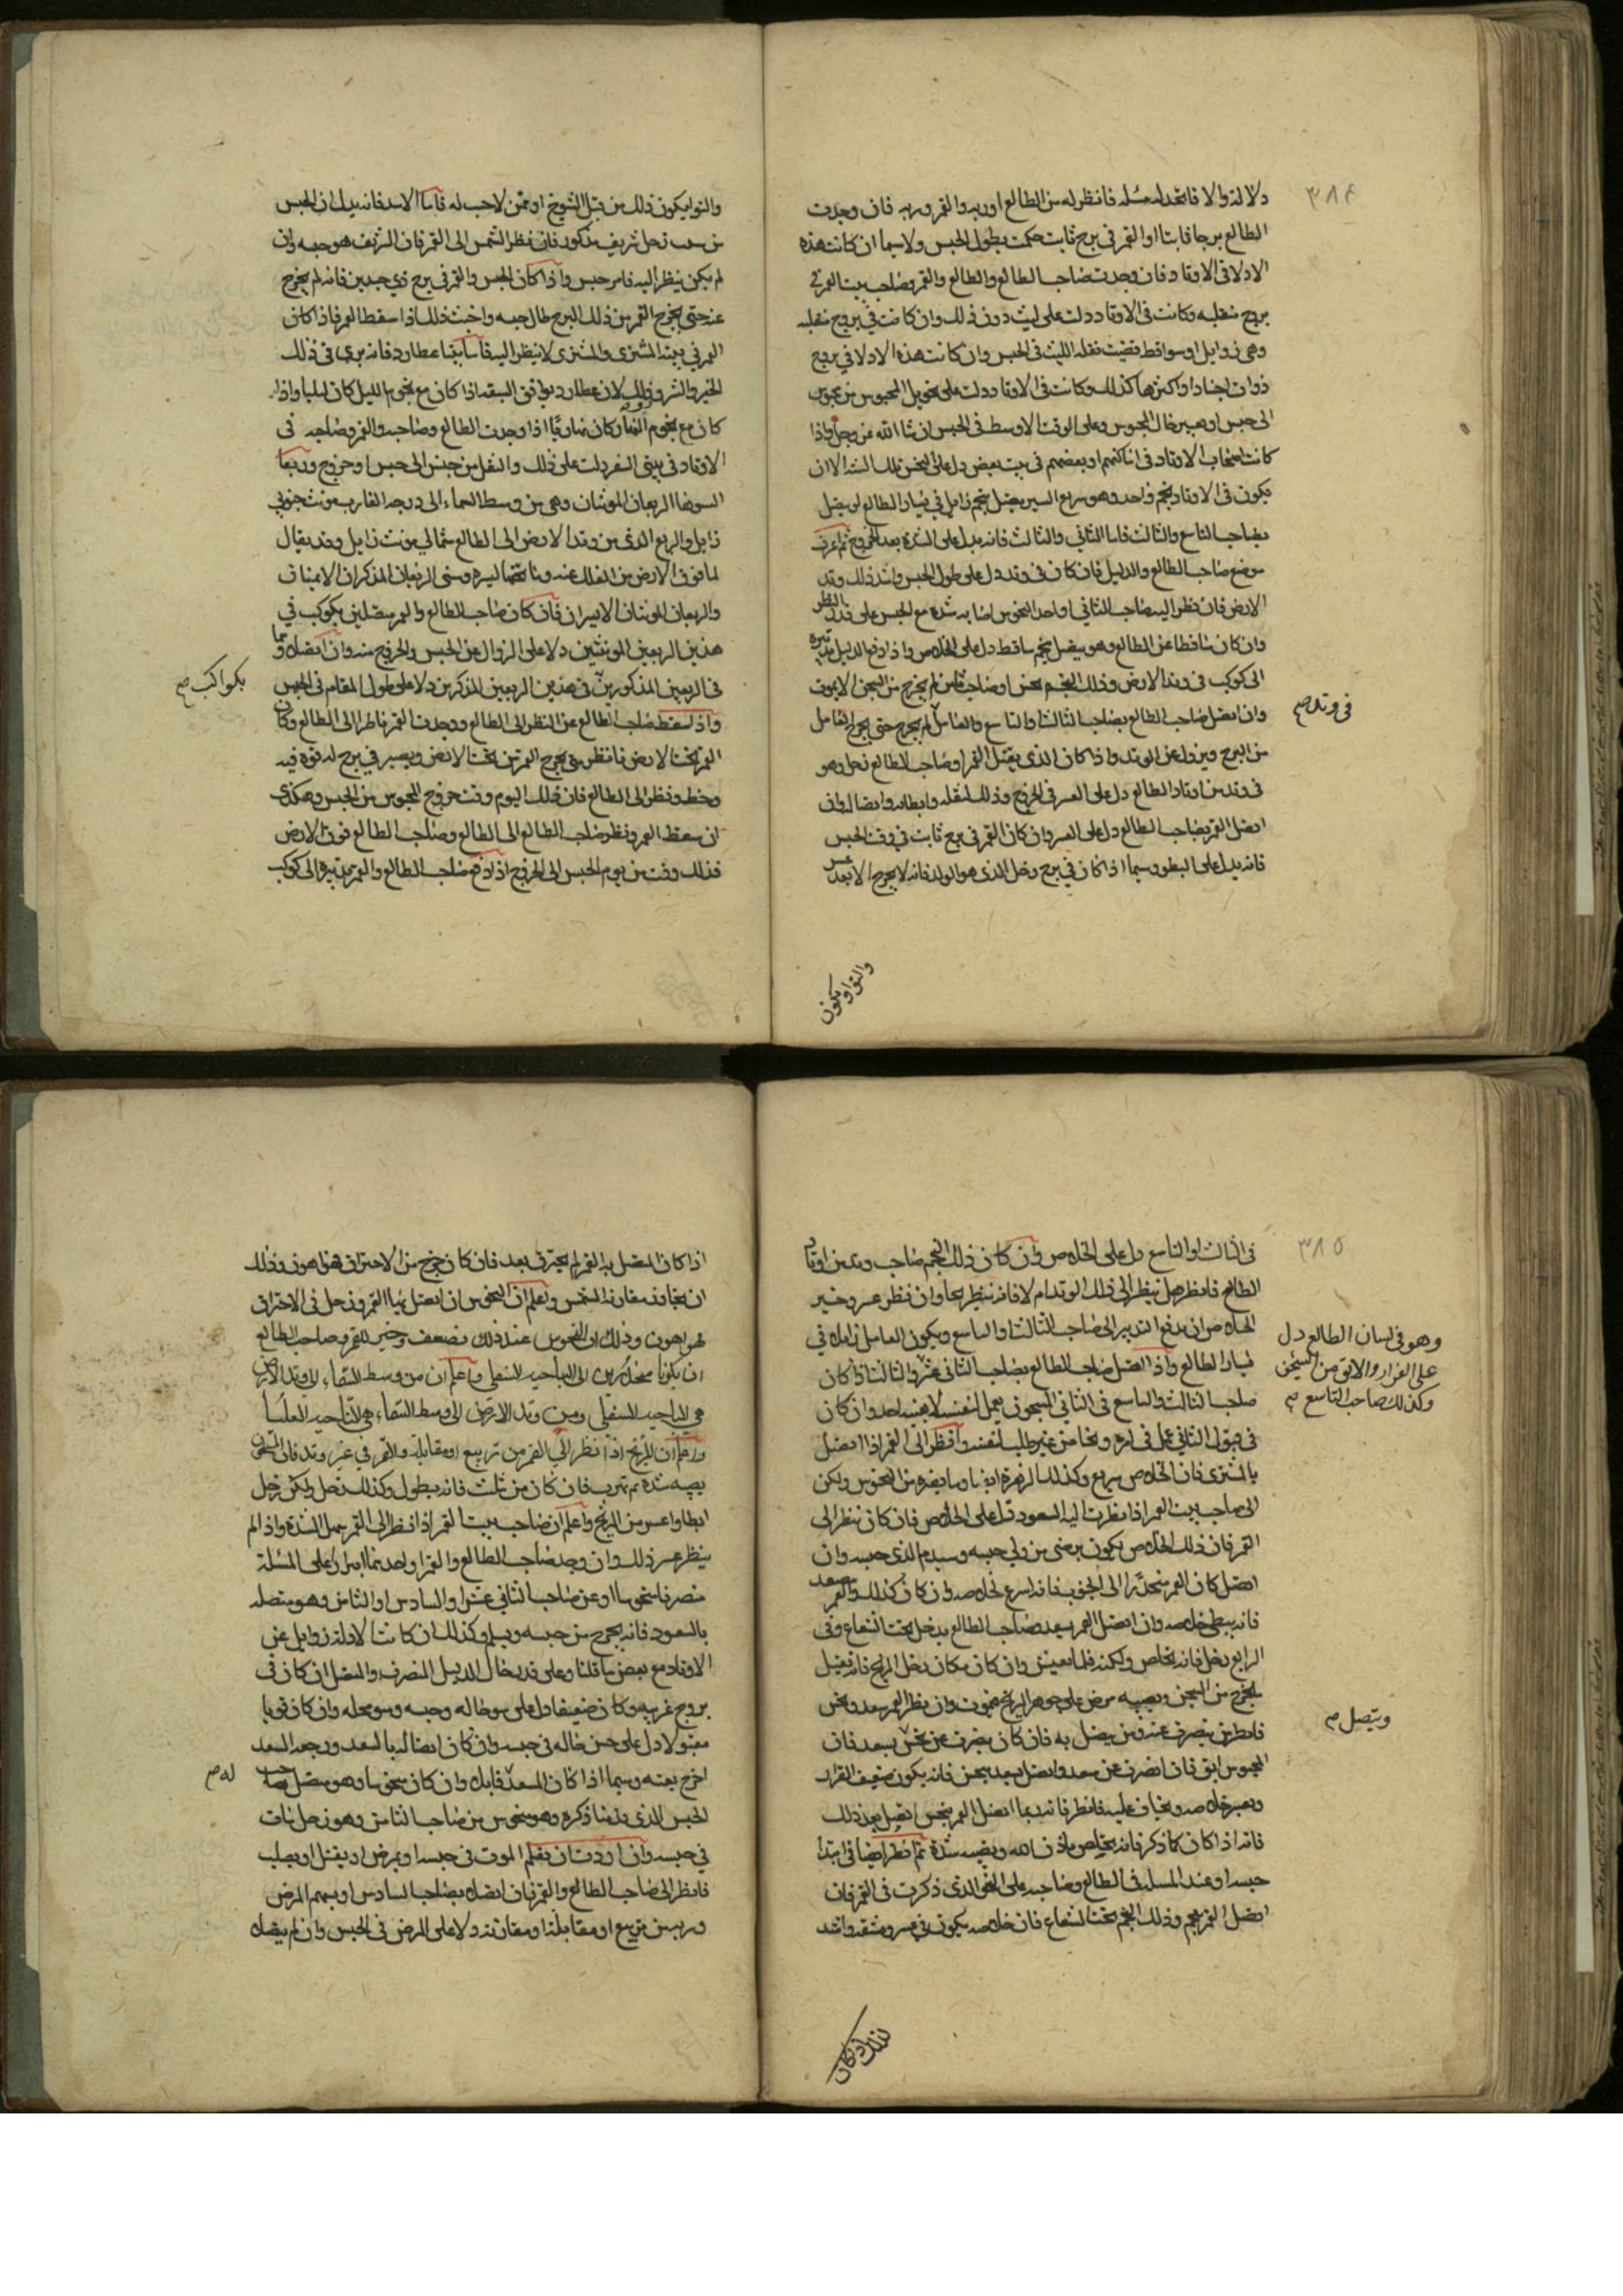 ٣٨٤
دلالة والا فاتخذ له مسئلة فانظر له من الطالع اوربه والقمر وربه فان وجدت
الطالع برجا ثابتا او القمر في برج ثابت حكمت بطول الحبس ولا سيما ان كانت هذه
الادلا في الاوتاد فان وجدت صاحب الطالع والطالع والقمر وصاحب بيت القمر في
بروج منقلبه وكانت في الاوتاد دلت على لبث دون ذلك وان كانت في بروج منقلبه
وهي زوايل او سواقط قضيت بقلة اللبث في الحبس وان كانت هذه الادلا في بروج
ذوات اجساد او اكثرها كذلك وكانت في الاوتاد دلت على تحويل المحبوس من حبس
الى حبس او تعيير حال المحبوس وعلى الوقت الاوسط في الحبس ان شا الله عز وجل واذا
كانت اصحاب الاوتاد في اماكنهم او بعضهم في بيت بعض دل على النحس تلك الشدة الا ان
يكون في الاوتاد نجم واحد وهو سريع السير يتصل بنجم زايل في يسار الطالع او يتصل
بصاحب التاسع والثالث فاما الثاني والثالث فانه يدل على الشدة بعد الخروج ثم اعرف
موضع صاحب الطالع والدليل فان كان في وتد دل على طول الحبس واشد ذلك وتد
الارض فان نظر اليه صاحب الثاني او احد النحوس اصابه شدة مع الحبس على قدر النظر
وان كان ساقطا عن الطالع وهو يتصل بنجم ساقط دل على الخلاص واذا دفع الدليل تدبيره
الى كوكب في وتد الارض وذلك النجم نحس او صاحب ثامن لم يخرج من السجن الا بموت
في وتد صح
وان اتصل صاحب الطالع بصاحب الثالث او التاسع والقابل لم يخرج حتى يخرج القابل
من البرج ويزول عن الوتد واذا كان الذي يقبل القمر او صاحب الطالع زحل وهو
في وتد من اوتاد الطالع دل على العسر في الخروج وذلك لثقله وابطايه وايضا لو ان
اتصل القمر بصاحب الطالع دل على العسر وان كان القمر في برج ثابت في وقت الحبس
فانه يدل على البطو وسيما اذا كان في برج زحل الذي هو الدلو فانه لا يخرج الا بعد عسر
والتواو يكون
والتواء يكون ذلك من قبل الشيوخ او ممن لا حب له فاما الاسد فانه يدل ان الحبس
من سبب رجل شريف مذكور فان نظر الشمس الى القمر فان الشريف هو حبسه وان
لم يكن ينظر اليه فامر حبس واذا كان الحبس والقمر في برج ذي جسدين فانه لم يخرج
عنه حتى يخرج القمر من ذلك البرج طال حبسه واخبث ذلك اذا سقط القمر فاذا كان
القمر في بيت المشتري والمشتري لا ينظر اليه فاما بيتا عطارد فانه يرجا في ذلك
الخير والشر وذلك لان عطارد يوافق السيفه اذا كان مع نجوم الليل كان ليليا واذا
كان مع نجوم النهار كان نهاريا اذا وجدت الطالع وصاحبه والقمر وصاحبه في
الاوتاد في بيتي السفر دلت على ذلك والنقل من حبس الى حبس او خروج وربعا
السوضا الربعان المونثان وهي من وسط السماء الى درجة الغارب مونث جنوبي
زايل والربع الذي من وتد الارض الى الطالع شمالي مونث زايل وقد يقال
لما فوق الارض من الفلك عنه وما تحتها يسره وسمى الربعان المذكران الايمنان
والربعان المونثان الايسران فان كان صاحب الطالع والقمر يتصلين بكوكب في
هذين الربعين المونثين دلا على الزوال عن الحبس والخروج منه وان اتصلا وهما
بكواكب صح
في الربعين المذكورين في هذين الربعين المذكرين دلا على طول المقام في الحبس
واذا سقط صاحب الطالع عن النظر الى الطالع ووجدت القمر ناظرا الى الطالع وكان
القمر تحت الارض فانظر متى يخرج القمر من تحت الارض ويصير في برج له قوة فيه
وحظ ونظر الى الطالع فان ذلك اليوم وقت خروج المحبوس من الحبس وهكذى
ان سقط القمر ونظر صاحب الطالع الى الطالع وصاحب الطالع فوق الارض
فذلك وقت من يوم الحبس الى الخروج اذا دفع صاحب الطالع والقمر تدبيره الى كوكب
٣٨٥
في الثالث او التاسع دل على الخلاص وان كان ذلك النجم صاحب وتد من اوتاد
الطالع فانظر هل ينظر الى ذلك الوتد ام لا فانه ينظر نجا وان نظر عسر وخير
الخلاص ان يدفع التدبير الى صاحب الثالث او التاسع ويكون القابل زايلا في
وهو في لسان الطالع دل
على الفرار والابق من السجن
وكذلك صاحب التاسع صح
يسار الطالع واذا اتصل صاحب الطالع بصاحب الثاني عشر والثالث اذا كان
صاحب الثالث والتاسع في الثاني المسجون يعمل لنفسه لا يعينه احد وان كان
في قبول الثاني عمل في امره ونجا من غير طلب لنفسه وانظر الى القمر اذا اتصل
بالمشتري فان الخلاص سريع وكذلك الزهرة ايضا وما يضره من النحوس ولكن
الى صاحب بيت القمر اذا نظرت اليه السعود دل على الخلاص فان كان ينظر الى
القمر فان ذلك الخلاص يكون برضى من ولي حبسه وسيندم الذي حبسه وان
اتصل كان القمر منحدرا الى الجنوب فانه اسرع لخلاصه وان كان كذلك والقمر يصعد
فانه يبطي خلاصه وان اتصل القمر بسعد وصاحب الطالع يدخل تحت الشعاع وفي
الرابع زحل فانه يتخلص ولكنه قلما يعيش وان كان مكان زحل المريخ فانه قبل
يخرج من السجن ويصيبه مرض على جوهر المريخ فيموت وان نظر القمر سعد ونحس
ويتصل صح
فانظر من ينصرف عنه ومن يتصل به فان كان ينصرف عن نحس بسعد فان
المحبوس ابق فان انصرف عن سعد واتصل بسعد بنحس فانه يكون ضعيف القرار
ويعسر خلاصه ويخاف عليه فانظر فانه ربما اتصل القمر بنحس اتصل بعد ذلك
فانه اذا كان كما ذكر فانه يتخلص باذن الله ويصيبه شدة ثم انظر ايضا في ابتدا
حبسه او عند المسلة في الطالع وصاحبه على النحو الذي ذكرت في القمر فان
اتصل القمر بنجم وذلك النجم تحت الشعاع فان خلاصه يكون في عسر ومشقة واشد
اذا كان المتصل به القمر لم يحترق بعد فان كان خرج من الاحتراق فهو اهون وذلك
ان يخاف مقارنة الشمس واعلم ان النحوس ان اتصل بها القمر وزحل في الاحتراق
فهو اهون وذلك ان النحوس عند ذلك تضعف وخير للقمر وصاحب الطالع
ان يكونا منحدرين الى الناحيه السفلى واعلم ان من وسط السماء الى وتد الارض
هي الناحيه السفلى ومن وتد الارض الى وسط السماء هي الناحيه العليا
واعلم ان المريخ اذا نظر الى القمر من تربيع او مقابلة والقمر في غير وتد فان المسجون
يصيبه شدة ثم تهرب فان كان من تثليث فانه يطول وكذلك زحل ولكن زحل
ابطا واعسر من المريخ واعلم ان صاحب بيت القمر اذا نظر الى القمر حمل الشدة واذا لم
ينظر عسر ذلك وان وجد صاحب الطالع والقمر او احدهما ابتزازا على المسئلة
منصرفا منحوسا او عن صاحب الثاني عشر او السادس او الثامن وهو متصله
بالسعود فانه يخرج من حبسه ويبلو وكذلك ان كانت الادلة زوايل عن
الاوتاد مع بعض ما قلنا وعلى قدر حال الدليل المنصرف والمتصل ان كان في
بروج غريبه وكان ضعيفا دل على سو حاله وحبسه وسو محله وان كان قويا
مقبولا دل على حسن حاله في حبسه وان كان اتصاله بالسعد ورجعه السعد
اخرج بعنه وسيما اذا كان السعد قابله وان كان منحوسا وهو متصل بصاحب
له صح
الحبس الذي قدمنا ذكره وهو منحوس من صاحب الثامن وهو زحل مات
في حبسه وان اردت ان تعلم الموت في حبسه او يمرض او يقتل او يصلب
فانظر الى صاحب الطالع والقمر فان اتصلا بصاحب السادس او بسهم المرض
وربه من تربيع او مقابلة او مقارنة دلا على المرض في الحبس وان لم يتصلا